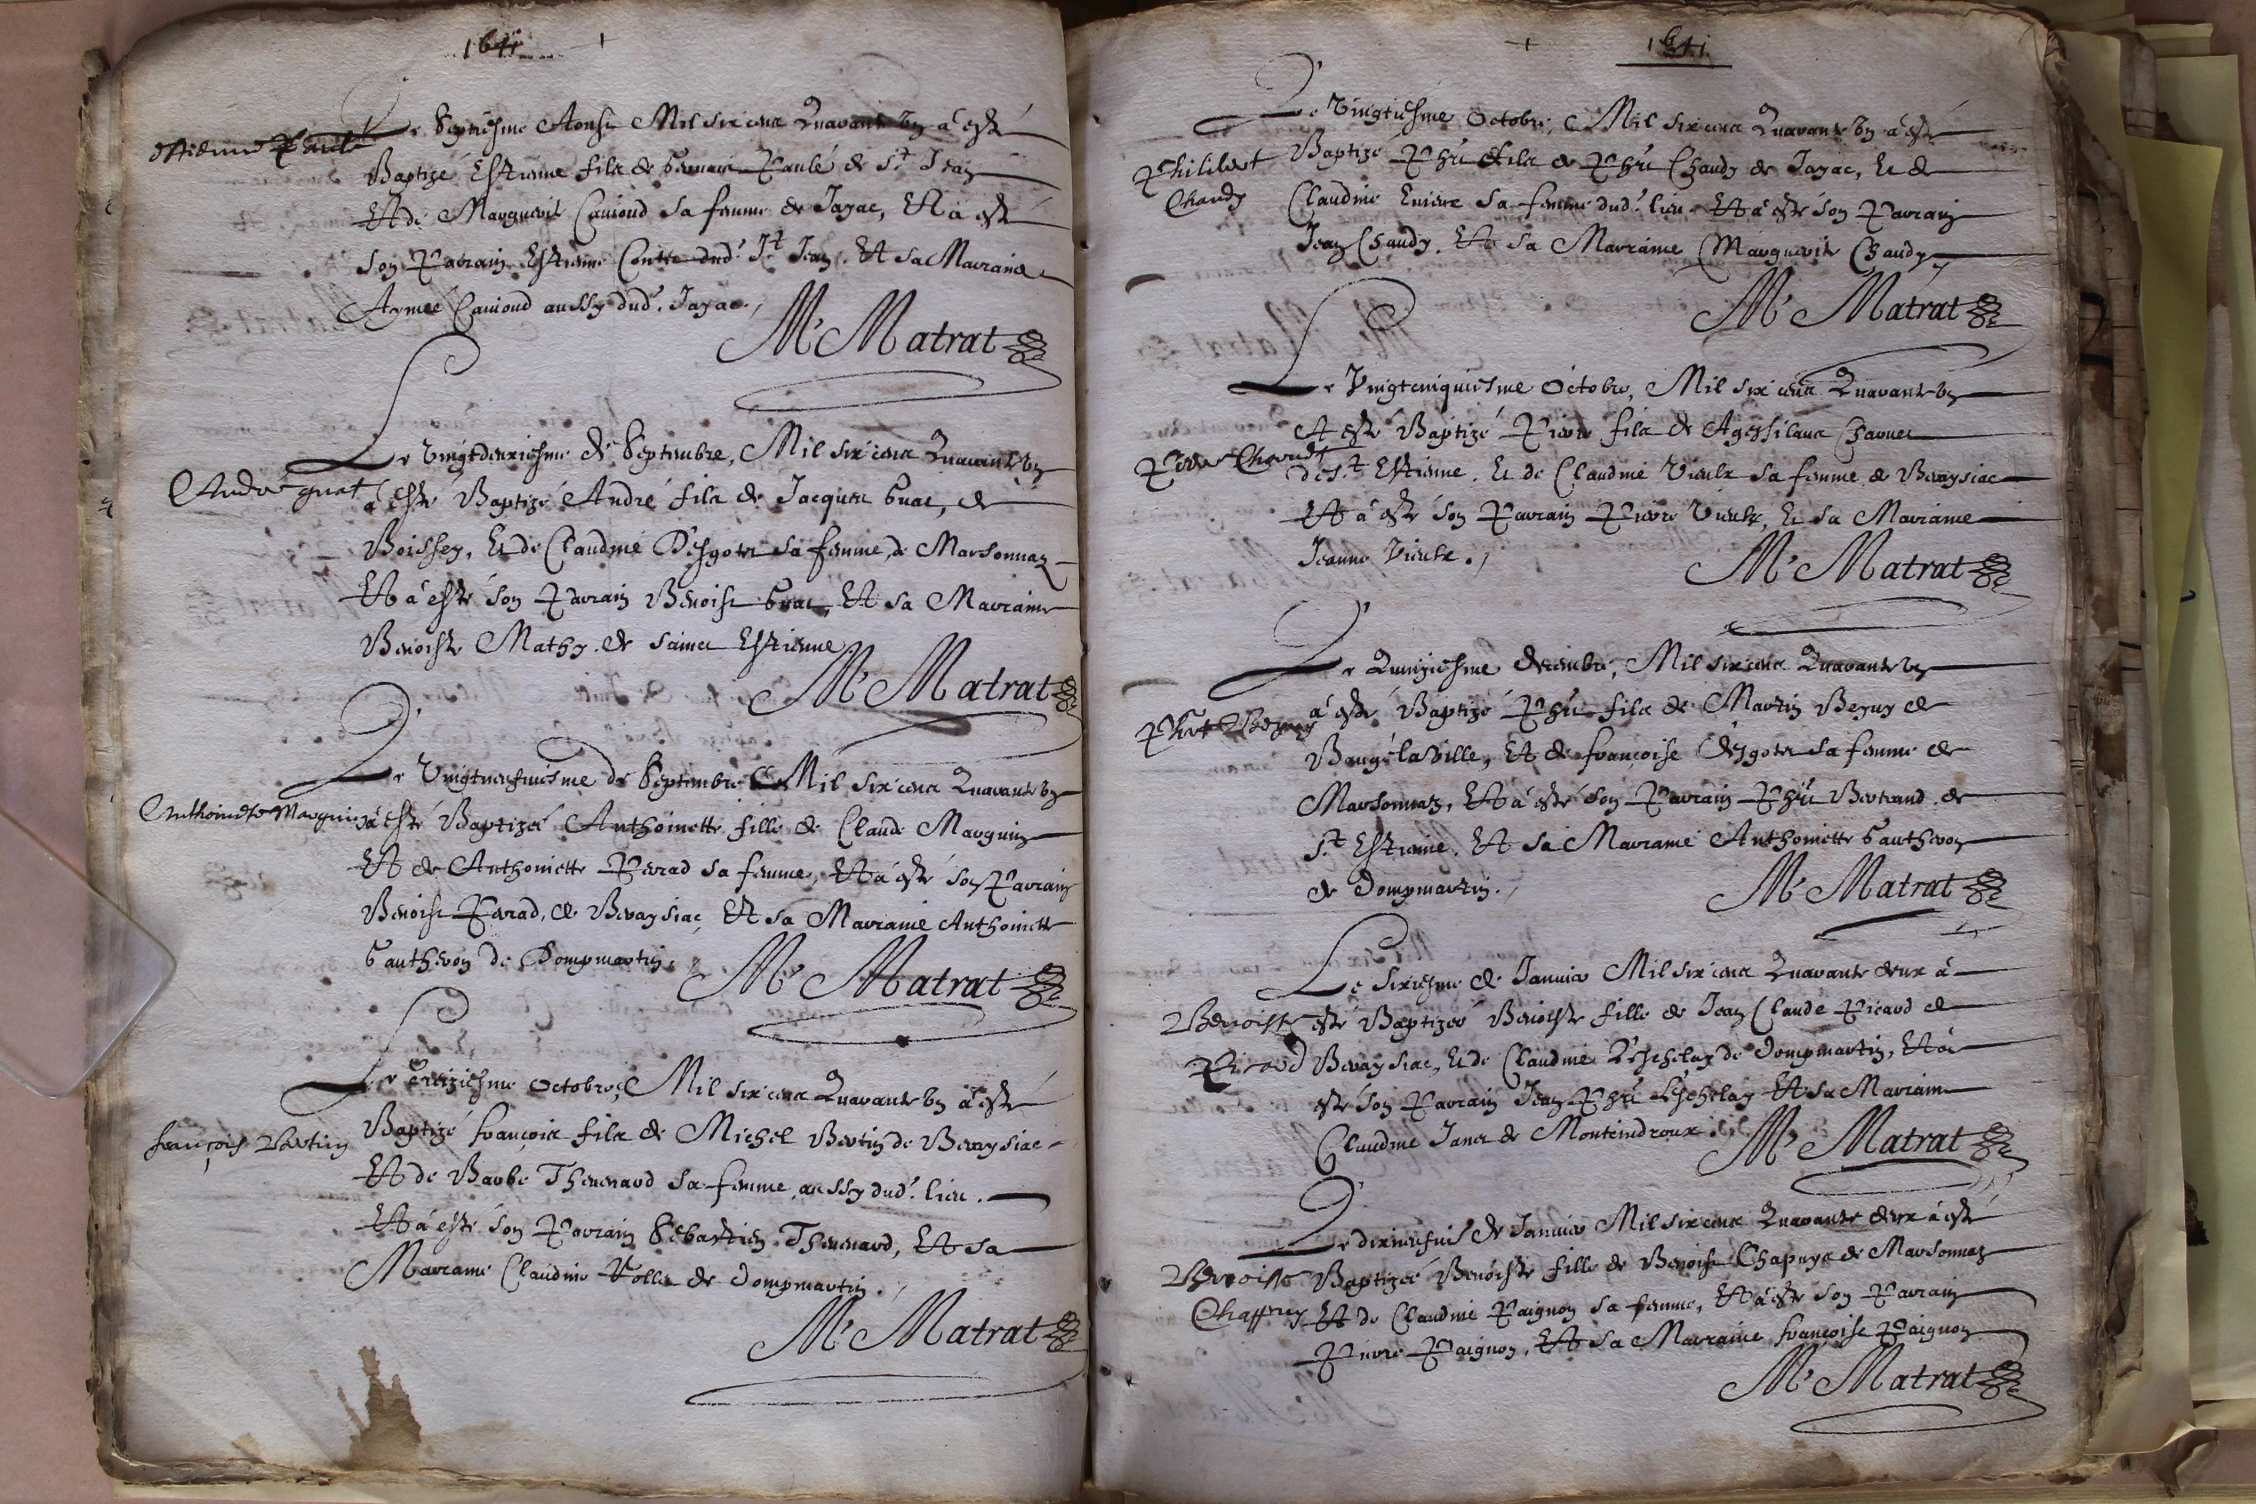 1641
Estienne Paulé
Le Septiesme Aoust Mil six cens Quarante Un a esté
Baptizé Estienne filz de Paulé de St Jean
Et de Marguerite Camond sa femme de Jayac, Et a esté
son Parrain Estienne Conte dud. St Jean. Et sa Marraine
Aymée Camond aussy dud. Jayac.
M Matrat
André guat
Le Vingtdeuxiesme de Septembre, Mil six cens Quarante Un
a esté Baptizé André filz de Jacques Guat, de
Boissey, Et de Claudine Desgotes sa femme, de Marsonnaz
Et a esté son Parrain Benoist Guat, Et sa Marraine
Benoiste Mathy de Sainct Estienne
M Matrat
Anthoinette Marguin
Le Vingtneufuiesme de Septembre Mil six cens Quarante Un
a esté Baptizeé Anthoinette fille de Claude Marguin
Et de Anthoinette Perrad sa femme, Et a esté son Parrain
Benoist Perrad, de Beraysiac, Et sa Marraine Anthoinette
Gautheron de Dompmartin.
M Matrat
françois Bertin
Le Treiziesme Octobre, Mil six cens Quarante Un a esté
Baptizé françois filz de Michel Bertin de Beraysiac
Et de Barbe Thevenard sa femme aussy dud. lieu.
Et a esté son Parrain Sebastien Thevenard, Et sa
Marraine Claudine Rollet de Dompmartin.
M Matrat
1641
Philibert
Chaudy
Le Vingtiesme Octobre, Mil six cens Quarante Un a esté
Baptizé Phŭ filz de Phŭ Chaudy de Jayac, Et de
Claudine sa femme dud. lieu Et a esté son Parrain
Jean Chaudy, Et sa Marraine Marguerite Chaudy
M Matrat
Pierre
Le Vingtcinquiesme Octobre, Mil six cens Quarante Un
A esté Baptizé Pierre filz de Agessilaus
de St Estienne, Et de Claudine Vieulx sa femme de Beraysiac
Et a esté son Parrain Pierre Vieulx, Et sa Marraine
Jeanne Vieulx.
M Matrat
Phbt Beguy
Le Quinziesme decembre, Mil six cens Quarante Un
a esté Baptizé Phŭ filz de Martin Beguy de
Baugé la Ville, Et de françoise Desgotes sa femme de
Marsonnaz, Et a esté son Parrain Phŭ Bertrand de
St Estienne, Et sa Marraine Anthoinette Gautheron
de Dompmartin.
M Matrat
Benoiste
Picard
Le Sixiesme de Janvier Mil six cens Quarante deux a
esté Baptizeé Benoiste fille de Jean Claude Picard de
Beraysiac, Et de Claudine Leschelay de Dompmartin, Et a
esté son Parrain Jean Phŭ Leschelay Et sa Marraine
Claudine Janet de Monteindroux
M Matrat
Benoiste
Chappuy
Le dixneufuie de Janvier Mil six cens Quarante deux a esté
Baptizeé Benoiste fille de Benoist Chapuys de Marsonnaz
Et de Claudine Paignon sa femme, Et a esté son Parrain
Pierre Paignon, Et sa Marraine françoise Paignon
M Matrat